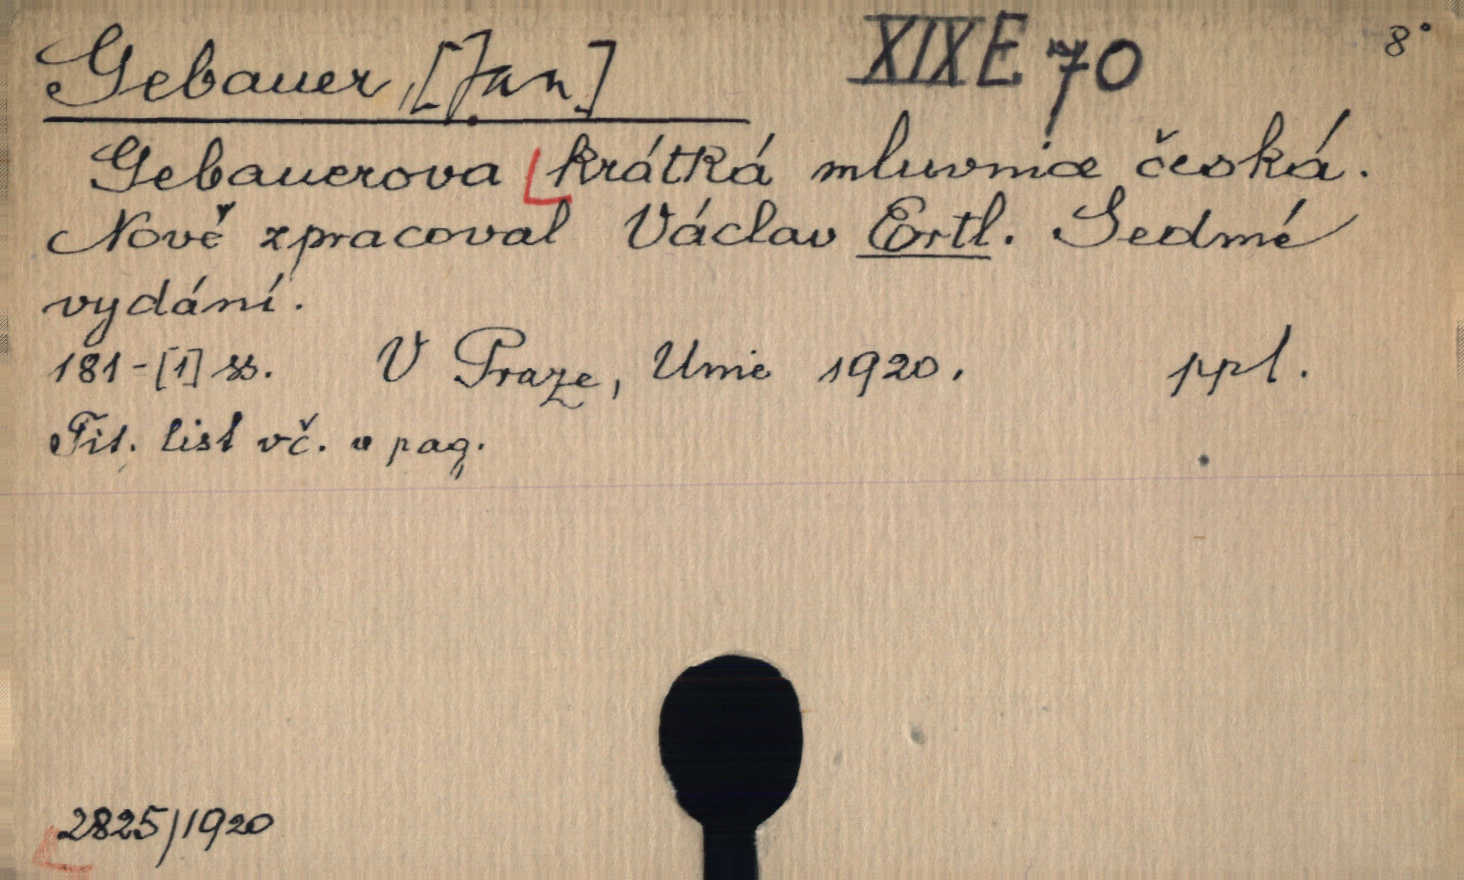 Gebauer, [Jan] XIX E 70 8°
Gebauerova krátká mluvnice česká.
Nově zpracoval Václav Ertl. Sedmé
vydání.
181-[1] ss. V Praze, Unie 1920. ppl.
Tit. list vč. v pag.
2825/1920